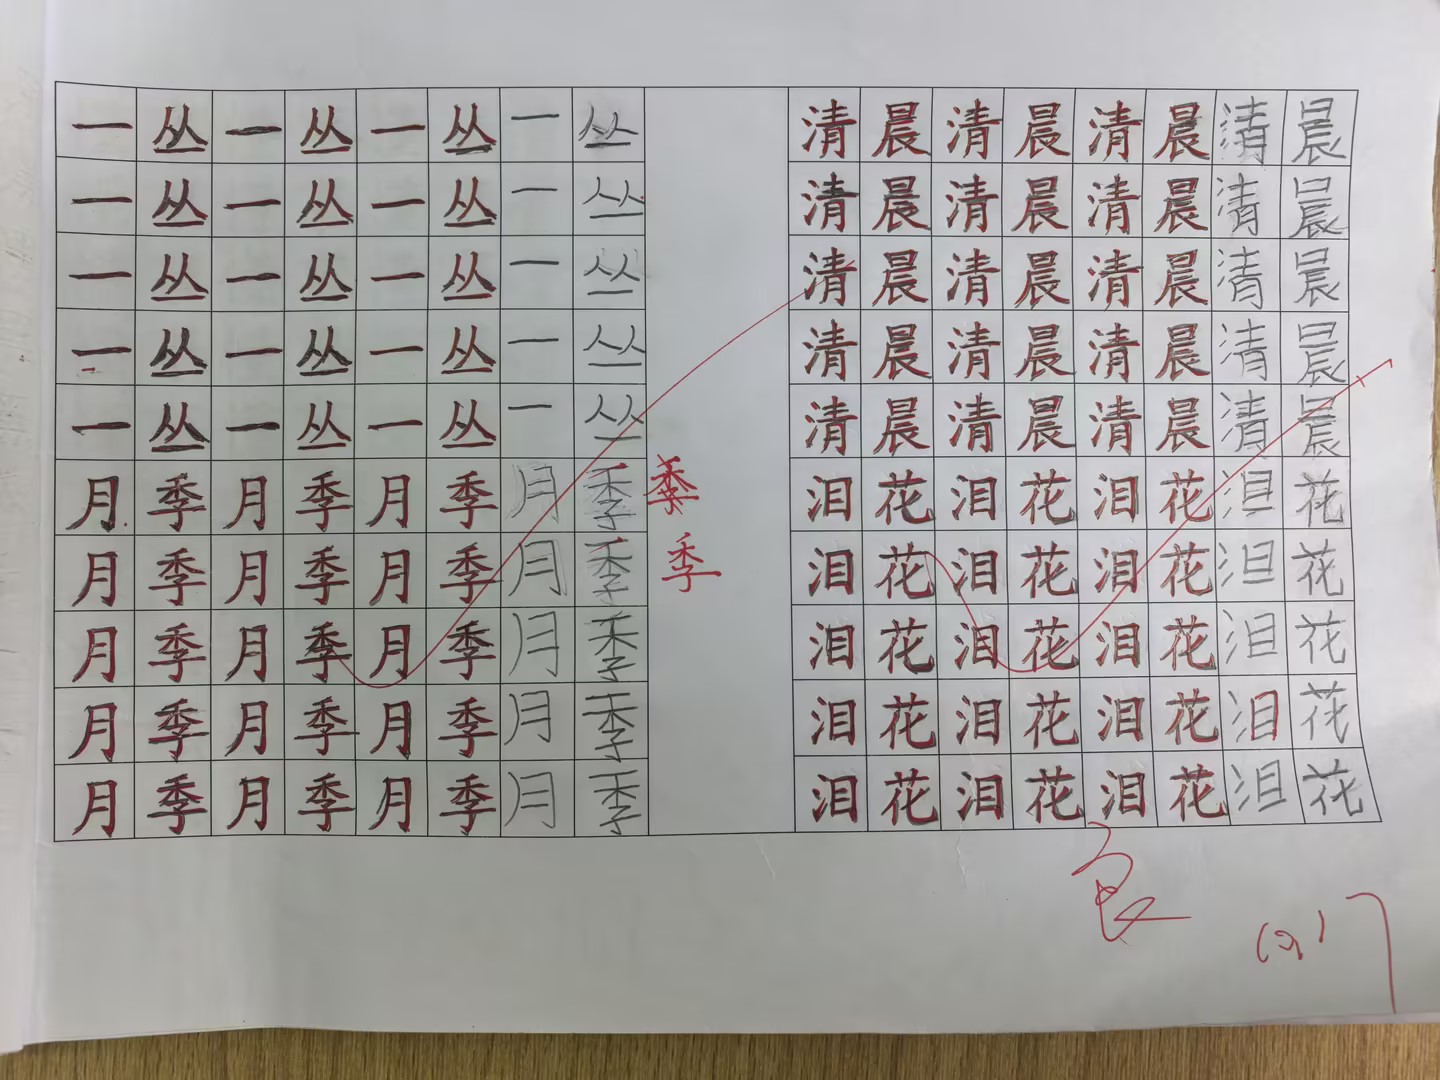 一丛一丛一丛一丛 清晨清晨清晨清晨
一丛一丛一丛一丛 清晨清晨清晨清晨
一丛一丛一丛一丛 清晨清晨清晨清晨
一丛一丛一丛一丛 清晨清晨清晨清晨
一丛一丛一丛一丛 清晨清晨清晨清晨
月季月季月季月季 泪花泪花泪花泪花
月季月季月季月季 季 泪花泪花泪花泪花
月季月季月季月季 泪花泪花泪花泪花
月季月季月季月季 泪花泪花泪花泪花
月季月季月季月季 泪花泪花泪花泪花
良